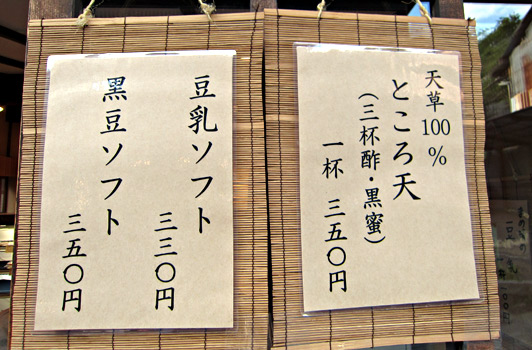 天草100%
ところ天
(三杯酢・黒蜜)
一杯 三五〇円
豆乳ソフト
三三〇円
黒豆ソフト
三五〇円